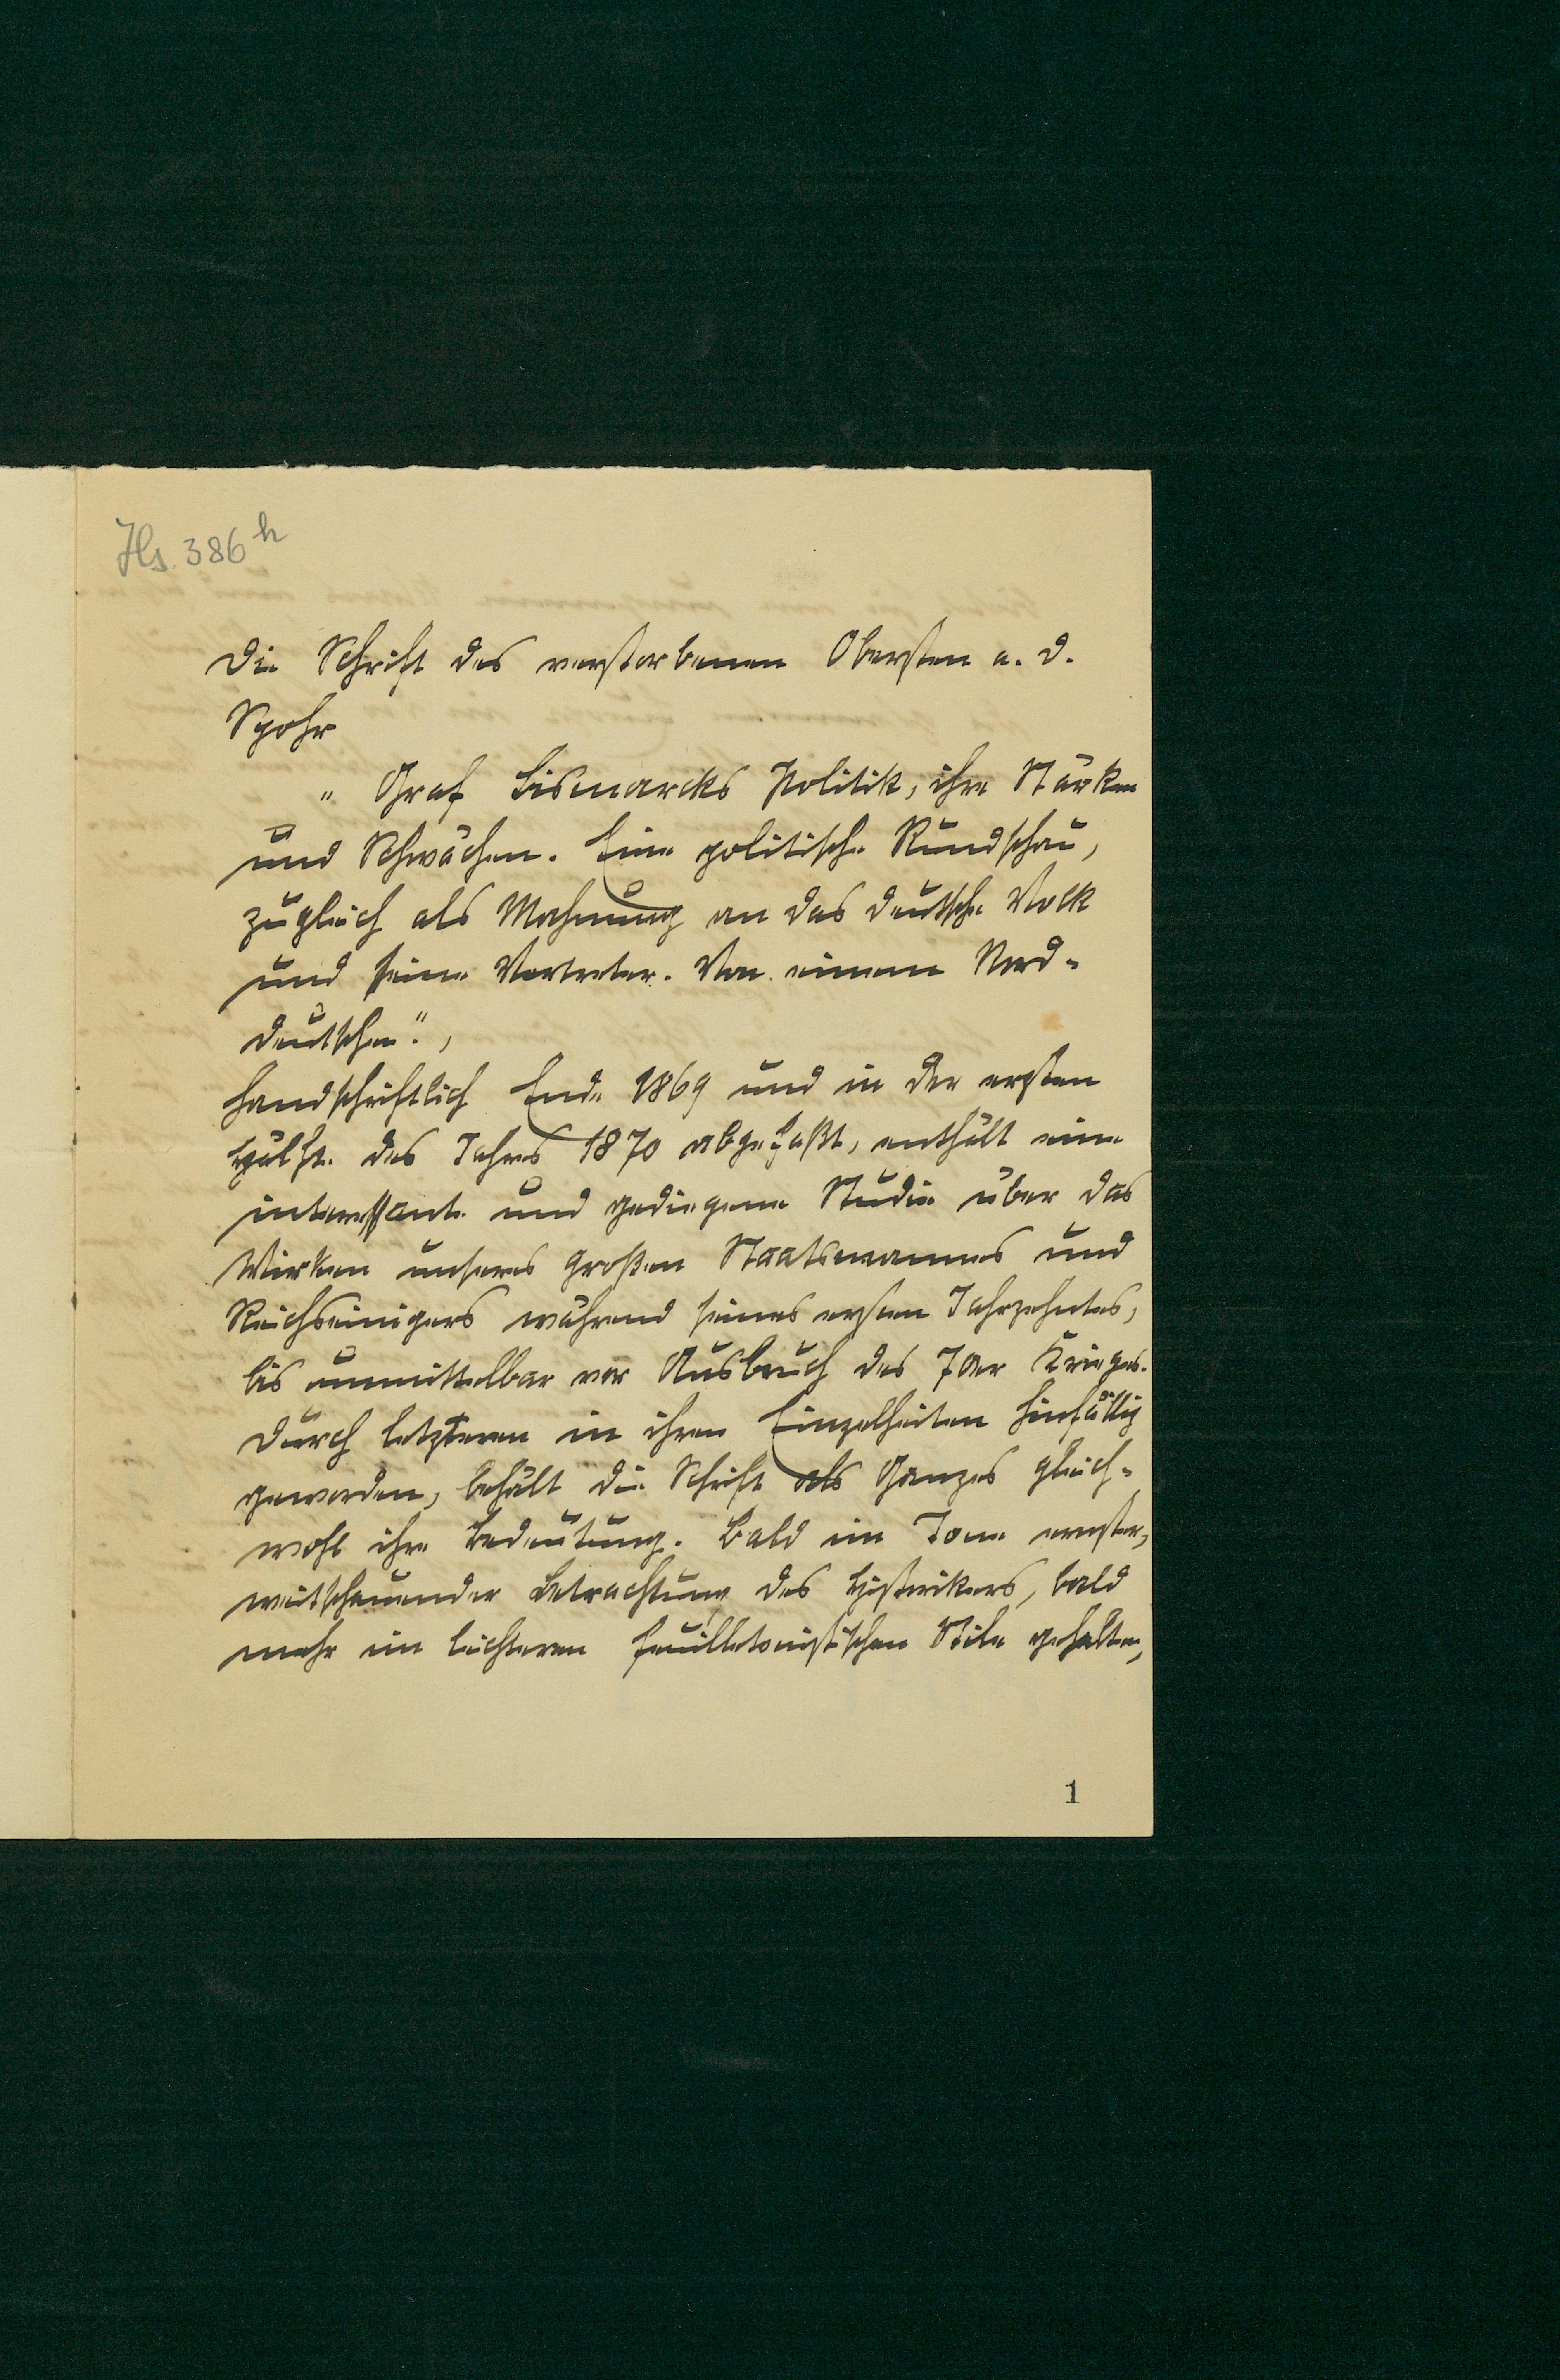 Hs. 386 h
Die Schrift des verstorbenen Obersten a. D.
Spohr
„Graf Bismarcks Politik, ihre Stärken
und Schwächen. Eine politische Rundschau,
zugleich als Mahnung an das deutsche Volk
und seine Vertreter. Von einem Nord-
deutschen.",
handschriftlich Ende 1869 und in der ersten
Hälfte des Jahres 1870 abgefaßt, enthält eine
interessante und gediegene Studie über das
Wirken unseres großen Staatsmannes und
Reichseinigers während seines ersten Jahrzehntes,
bis unmittelbar vor Ausbruch des 70er Krieges.
Durch letzteren in ihren Einzelheiten hinfällig
geworden, behält die Schrift als Ganzes gleich-
wohl ihre Bedeutung. Bald im Tone ernster,
weitschauender Betrachtung des Historikers, bald
mehr im leichteren feuilletonistischen Stile gehalten,
1